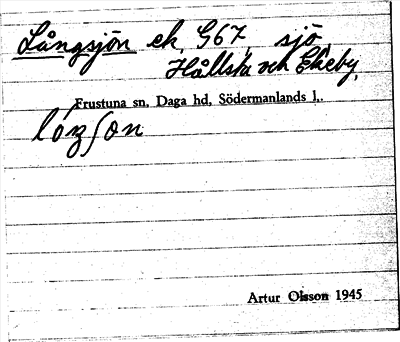 Långsjön ek. G67, sjö
Hållsta och Ekeby,
Frustuna sn, Daga hd, Södermanlands l.,
Artur Olsson 1945